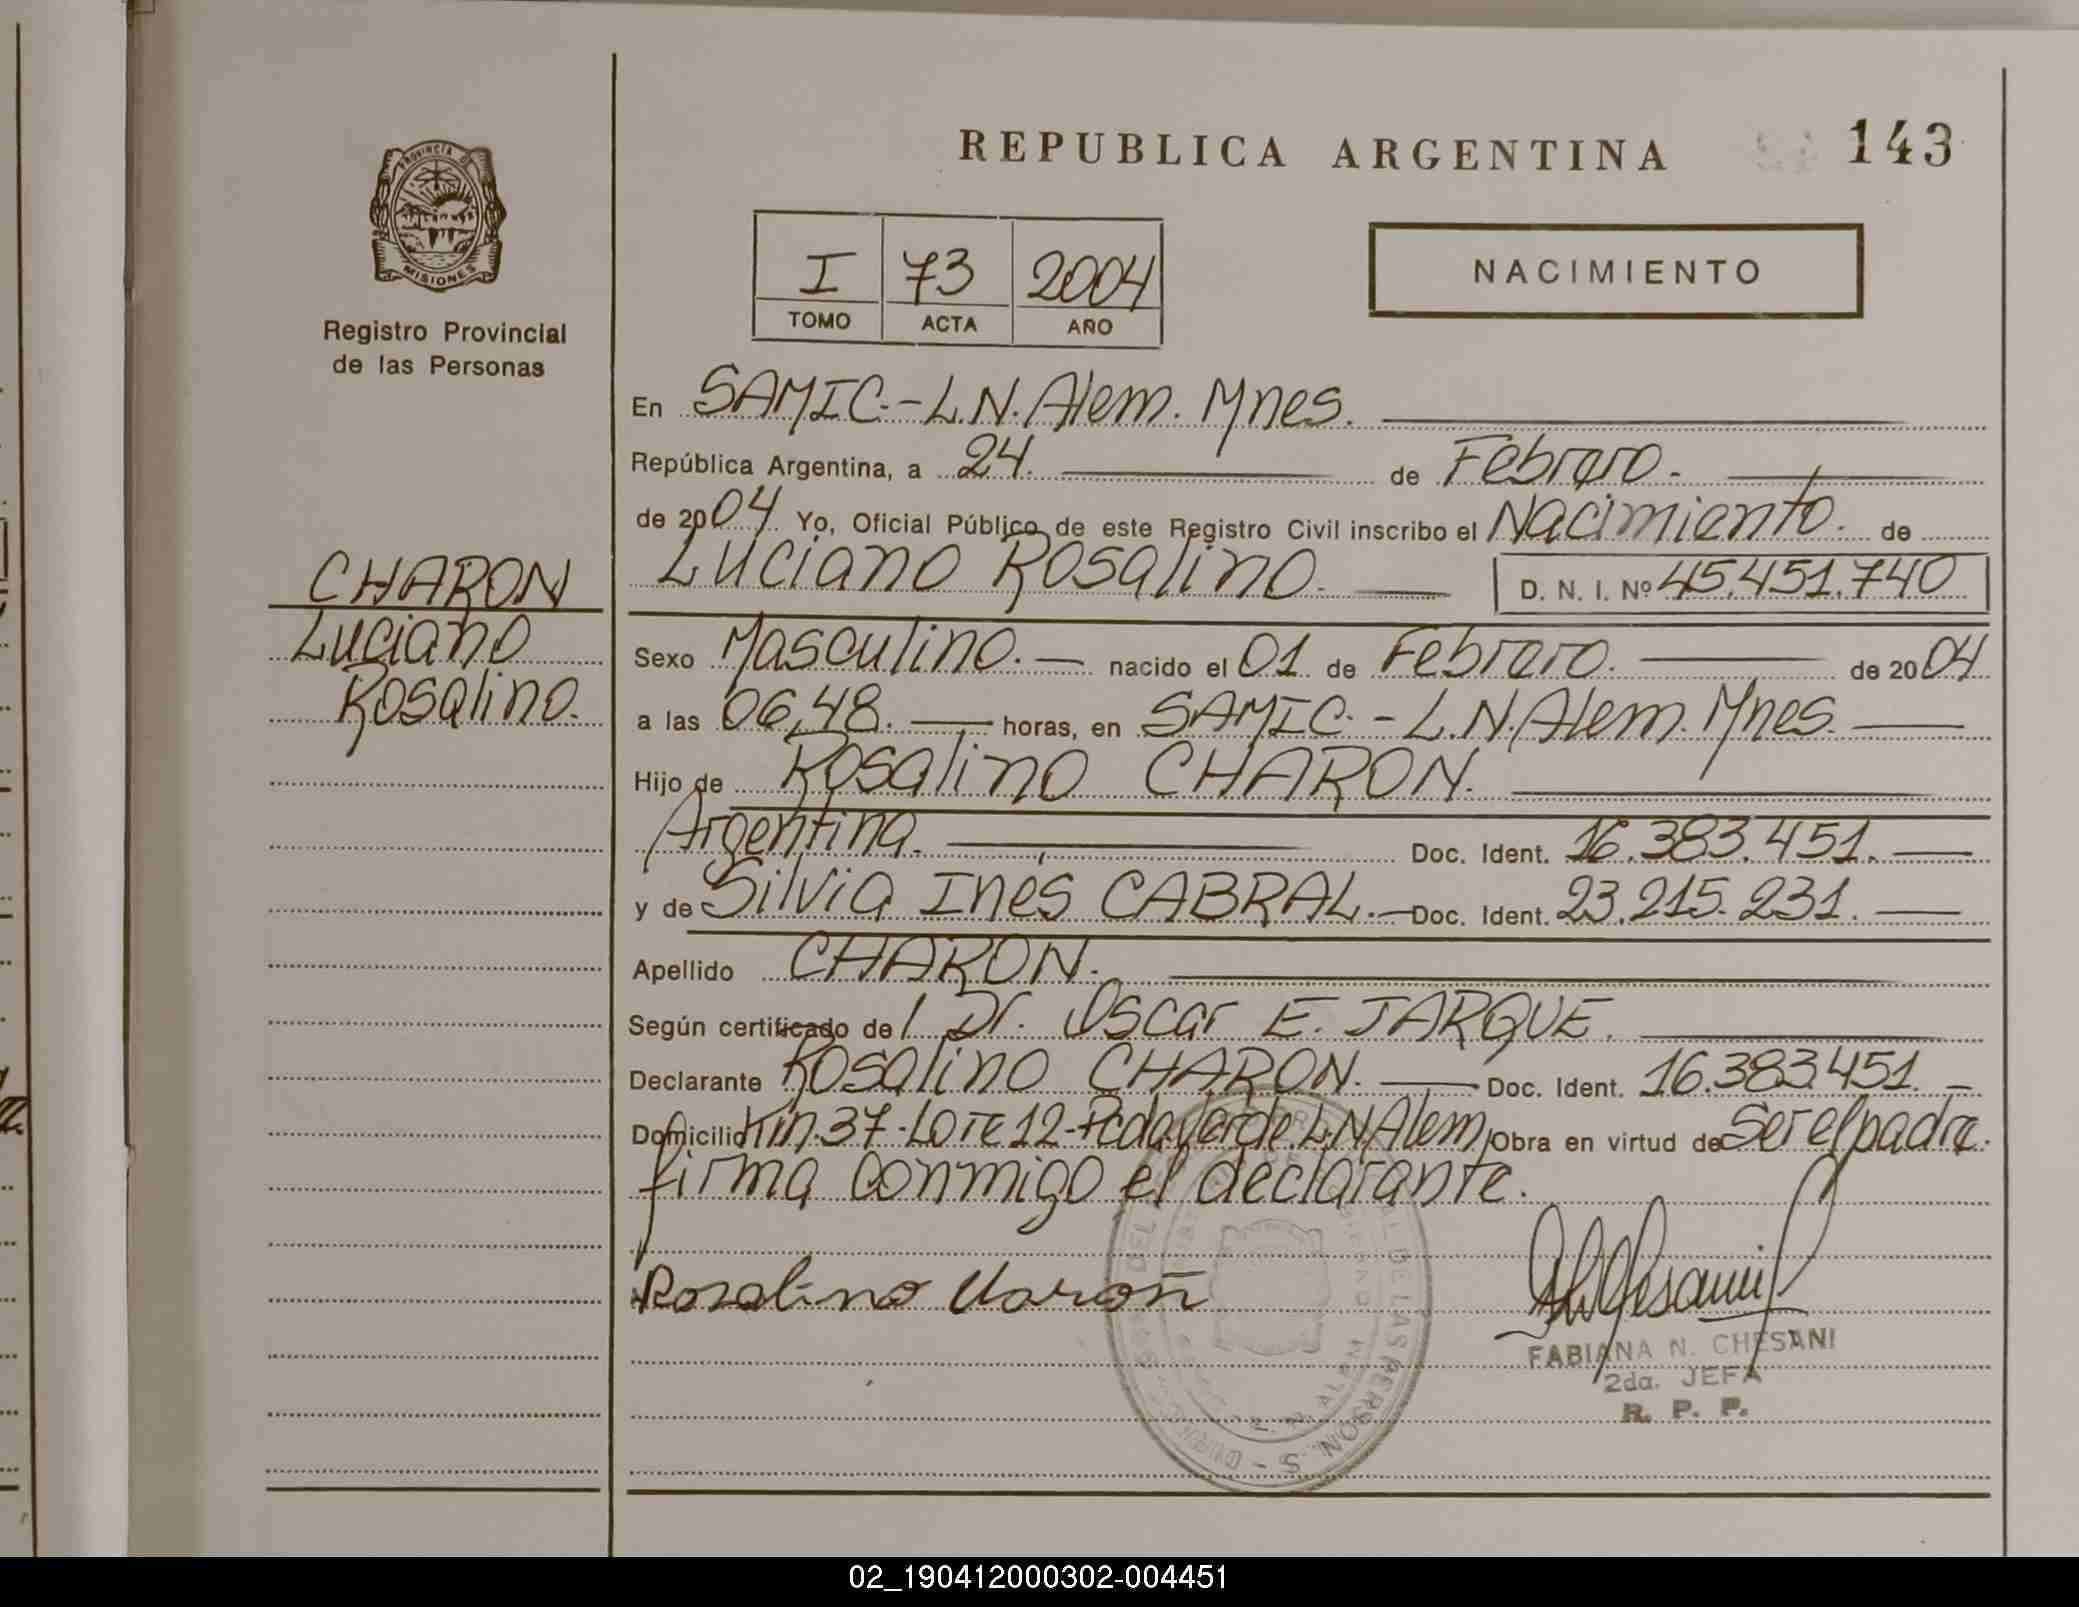 REPUBLICA ARGENTINA
143
PROVINCIA DE
MISIONES
Registro Provincial
de las Personas
I 73 2004
TOMO ACTA AÑO
NACIMIENTO
En SAMIC.-L.N.Alem. Mnes.
República Argentina, a 24. de Febrero.
de 2004 Yo, Oficial Público de este Registro Civil inscribo el Nacimiento. de
Luciano Rosalino. D. N. I. Nº 45.451.740
CHARON
Luciano
Rosalino.
Sexo Masculino. nacido el 01 de Febrero. de 2004
a las 06,48. horas, en SAMIC.-L.N.Alem. Mnes.
Hijo de Rosalino CHARON.
Argentina. Doc. Ident. 16.383.451.
y de Silvia Inés CABRAL. Doc. Ident. 23.215.231.
Apellido CHARON.
Según certificado de l Dr. Oscar E. JARQUE.
Declarante Rosalino CHARON. Doc. Ident. 16.383.451.
Domicilio Km.37-Lote 12-Pcda. Verde. L.N.Alem, Obra en virtud de Ser el padre.
firma conmigo el declarante.
Rosalino
FABIANA N. CHESANI
2da. JEFA
R. P. P.
L. N. ALEM
DE LAS PERSONAS
02_190412000302-004451